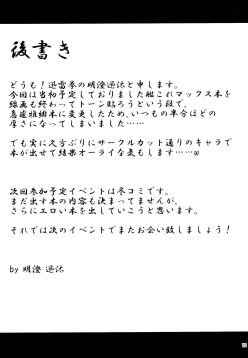 後書き
どうも！迅雷拳の明澄逐体と申します。
今回は当初予定しておりました艦これマックス本を
線画も終わってトーン貼ろうという段で、
急遽祖緋本に変更したため、いつもの半分ほどの
厚さになってしまいました……
でも実に久方ぶりにサークルカット通りのキャラで
本が出せて結果オーライな気もします……w
次回参加予定イベントは冬コミです。
まだ出す本の内容も決まってませんが、
さらにエロい本を出していこうと思います。
それでは次のイベントでまたお会い致しましょう！
by 明澄